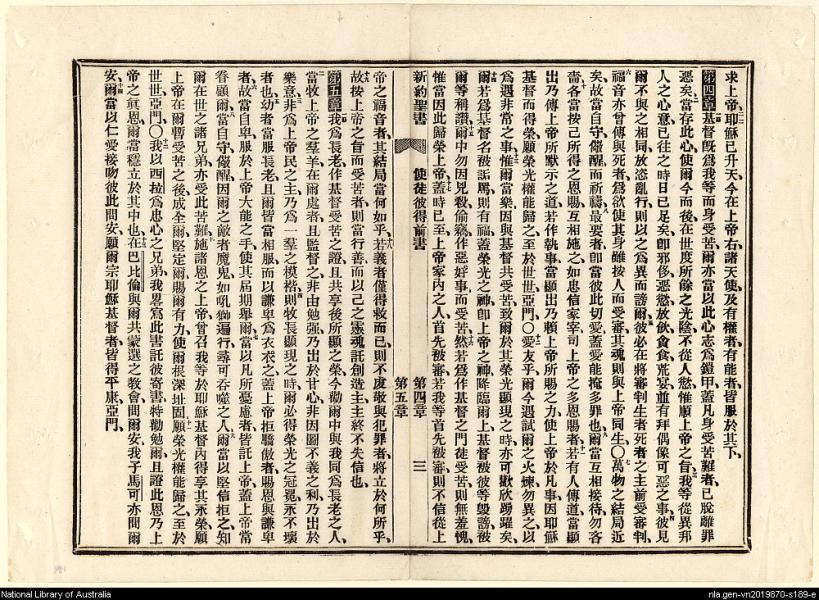 求上帝、耶穌已升天、今在上帝右、諸天使及有權者、有能者、皆服於其下、
第四章 基督旣爲我等而身受苦、爾亦當以此心志爲鎧甲、蓋凡身受苦難者、已脫離罪
惡矣、當存此心、使爾今而後在世度所餘之光陰、不從人慾、惟順上帝之旨、我等從異邦
人之心意、已往之時日已足矣、卽邪侈、惡慾、放飲、貪食、荒宴、並有拜偶像可惡之事、彼見
爾不與之相同放恣亂行、則以之爲異而謗爾、彼必在將審判生者死者之主前受審判、
福音亦曾傳與死者、爲欲使其身雖按人而受審、其魂則與上帝同生、〇萬物之結局近
矣、故當自守儆醒而祈禱、最要者、卽當彼此切愛、蓋愛能掩多罪也、爾當互相接待勿吝
嗇、各當按己所得之恩賜互相施之、如忠信家宰、司上帝之多恩賜者、若有人傳道、當顯
出乃傳上帝所默示之道、若作執事、當顯出乃賴上帝所賜之力、使上帝於凡事因耶穌
基督而得榮、願榮光權能歸之、至於世世、亞門、〇愛友乎、爾今遇試爾之火煉、勿異之、以
爲遇非常之事、惟爾當樂、因與基督共受苦、致爾於其榮光顯現之時、亦可歡欣踴躍矣、
爾若爲基督名被詬罵、則有福、蓋榮光之神、卽上帝之神、降臨爾上、基督被彼等毀謗、被
爾等稱讚、爾中勿因兇殺、偷竊、作惡、好事而受苦、然若爲作基督之門徒受苦、則無羞愧、
惟當因此歸榮上帝、蓋時已至、上帝家內之人、首先被審、若我等首先被審、則不信從上
新約聖書 使徒彼得前書 第四章 第五章 三
帝之福音者、其結局當何如乎、若義者僅得救而已、則不虔敬與犯罪者、將立於何所乎、
故按上帝之旨而受苦者、則當行善、而以己之靈魂託創造主、主終不失信也、
第五章 我爲長老、作基督受苦之證、且共享後所顯之榮、今勸爾中與我同爲長老之人、
當牧上帝之羣羊在爾處者、且監督之、非由勉强、乃出於甘心、非因圖不義之利、乃出於
樂意、非爲上帝民之主、乃爲一羣之模楷、則牧長顯現之時、爾必得榮光之冠冕永不壞
者也、幼者當服長老、且爾皆當相服、而以謙卑爲衣衣之、蓋上帝拒驕傲者、賜恩與謙卑
者、故當自卑、服於上帝大能之手、使其屆期舉爾、當以凡所憂慮者皆託上帝、蓋上帝常
眷顧爾、當自守儆醒、因爾之敵者魔鬼、如吼獅遍行、尋可吞噬之人、爾當以堅信拒之、知
爾在世之諸兄弟、亦受此苦難、施諸恩之上帝、曾召我等於耶穌基督內得享其永榮、願
上帝在爾暫受苦之後、成全爾、堅定爾、賜爾有力、使爾根深址固、願榮光權能歸之、至於
世世、亞門、〇我以西拉爲忠心之兄弟、我畧寫此書託彼寄書、特勸勉爾、且證此恩乃上
帝之眞恩、爾當穩立於其中也、在巴比倫與爾共蒙選之教會問爾安、我子馬可亦問爾
安、爾當以仁愛接吻彼此問安、願爾宗耶穌基督者、皆得平康、亞門、
National Library of Australia
nla.gen-vn2019870-s189-e